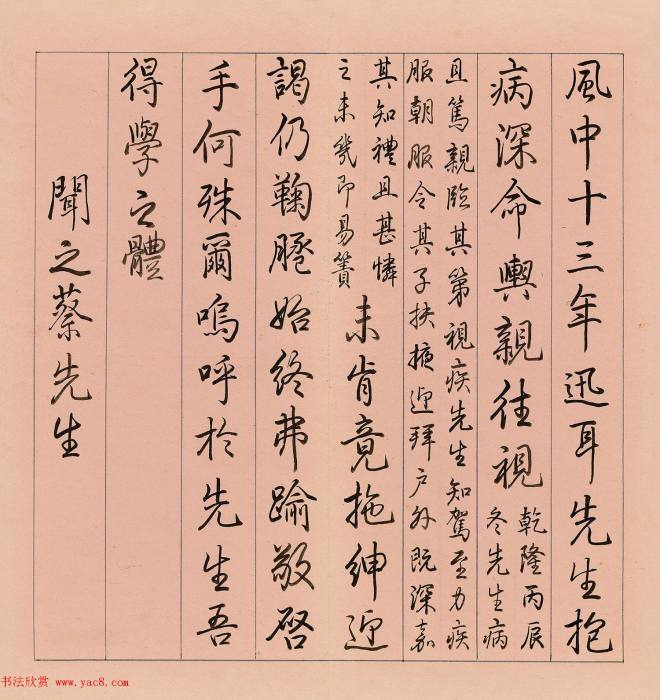 風中十三年迅耳先生抱
病深命輿親往視乾隆丙辰
冬先生病
且篤親臨其第視疾先生知駕至力疾
服朝服令其子扶掖迎拜户外既深嘉
其知禮且甚憐
之未幾即易簀未肯竟拖紳迎
謁仍鞠䠆始終弗踰敬啓
手何殊爾嗚呼於先生吾
得學之體
聞之蔡先生
书法欣赏 www.yac8.com